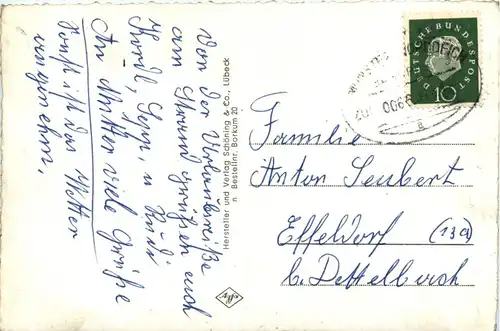 Von der Verlobungsreise
am Strand grüßen euch
Gern u. Rudi
An Mutter viele Grüße
Sonst ist das Wetter
angenehm,
Hersteller und Verlag Schöning & Co., Lübeck
n Bestellnr. Borkum 20
DEUTSCHE BUNDESPOST
10
Familie
Anton Seubert
Effeldorf (13a)
b. Dettelbach